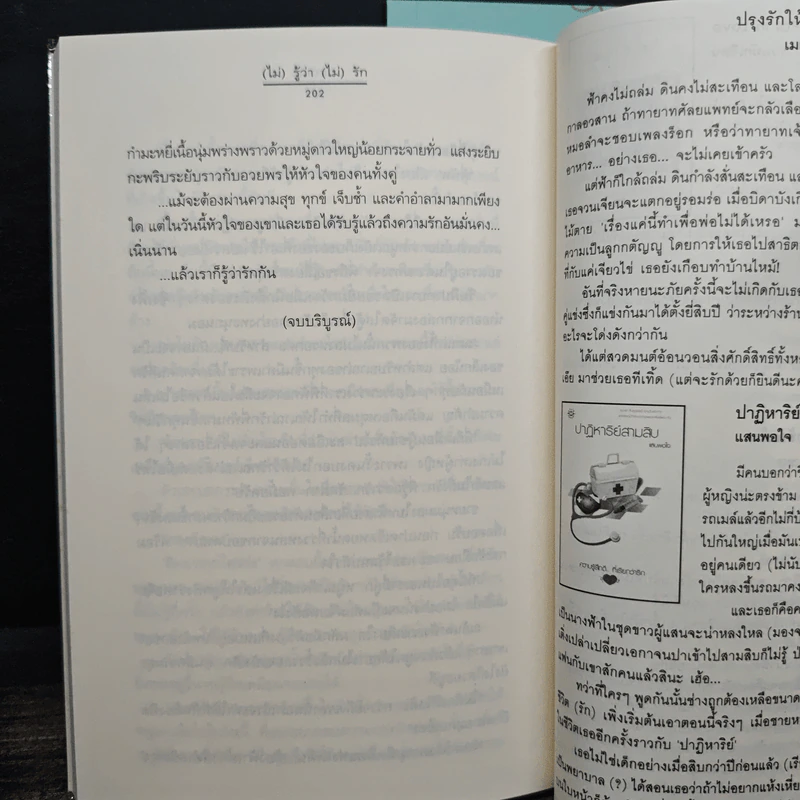 (ไม่) รู้ว่า (ไม่) รัก
202
กำมะหยี่เนื้อนุ่มพร่างพราวด้วยหมู่ดาวใหญ่น้อยกระจายทั่ว แสงระยิบ
กะพริบระยับราวกับอวยพรให้หัวใจของคนทั้งคู่
...แม้จะต้องผ่านความสุข ทุกข์ เจ็บช้ำ และคำอำลามามากเพียง
ใด แต่ในวันนี้หัวใจของเขาและเธอได้รับรู้แล้วถึงความรักอันมั่นคง...
เนิ่นนาน
...แล้วเราก็รู้ว่ารักกัน
(จบบริบูรณ์)
ปรุงรักให้
เม
ฟ้าคงไม่ถล่ม ดินคงไม่สะเทือน และโล
กาลอวสาน ถ้าทายาทศัลยแพทย์จะกลัวเลือ
หมอลำจะชอบเพลงร็อก หรือว่าทายาทเจ้
อาหาร... อย่างเธอ... จะไม่เคยเข้าครัว
แต่ฟ้าก็ใกล้ถล่ม ดินกำลังสั่นสะเทือน แล
เธอจวนเจียนจะแตกอยู่รอมร่อ เมื่อบิดาบังเกิ
ไม้ตาย 'เรื่องแค่นี้ทำเพื่อพ่อไม่ได้เหรอ' ม
ความเป็นลูกกตัญญู โดยการให้เธอไปสาธิต
ที่กับแค่เจียวไข่ เธอยังเกือบทำบ้านไหม้!
อันที่จริงหายนะภัยครั้งนี้จะไม่เกิดกับเธอ
คู่แข่งซึ่งก็แข่งกันมาได้ตั้งยี่สิบปี ว่าระหว่างร้าน
อะไรจะโด่งดังกว่ากัน
ได้แต่สวดมนต์อ้อนวอนสิ่งศักดิ์สิทธิ์ทั้งห
เอ๋ย มาช่วยเธอทีเทิ้ด (แต่จะรักด้วยก็ยินดีนะค
ปาฏิหาริย์สามสิบ
แสนพอใจ
ความรู้สึกดี... ที่เรียกว่ารัก
ปาฏิหาริย์
แสนพอใจ
มีคนบอกว่าชี
ผู้หญิงน่ะตรงข้าม
รถเมล์แล้วอีกไม่กี่ป้
ไปกันใหญ่เมื่อมันเ
อยู่คนเดียว (ไม่นับ
ใครหลงขึ้นรถมาคง
และเธอก็คือค
เป็นนางฟ้าในชุดขาวผู้แสนจะน่าหลงใหล (มองจ
เด่งเปล่าเปลี่ยวเอกาจนปาเข้าไปสามสิบก็ไม่รู้ ป่
แฟนกับเขาสักคนแล้วสินะ เฮ้อ...
ทว่าที่ใครๆ พูดกันนั้นช่างถูกต้องเหลือขนาด
ชีวิต (รัก) เพิ่งเริ่มต้นเอาตอนนี้จริงๆ เมื่อชายห
ในชีวิตเธออีกครั้งราวกับ 'ปาฏิหาริย์'
เธอไม่ใช่เด็กอย่างเมื่อสิบกว่าปีก่อนแล้ว (เรี
เป็นพยาบาล (?) ได้สอนเธอว่าถ้าไม่อยากแห้งเหี่